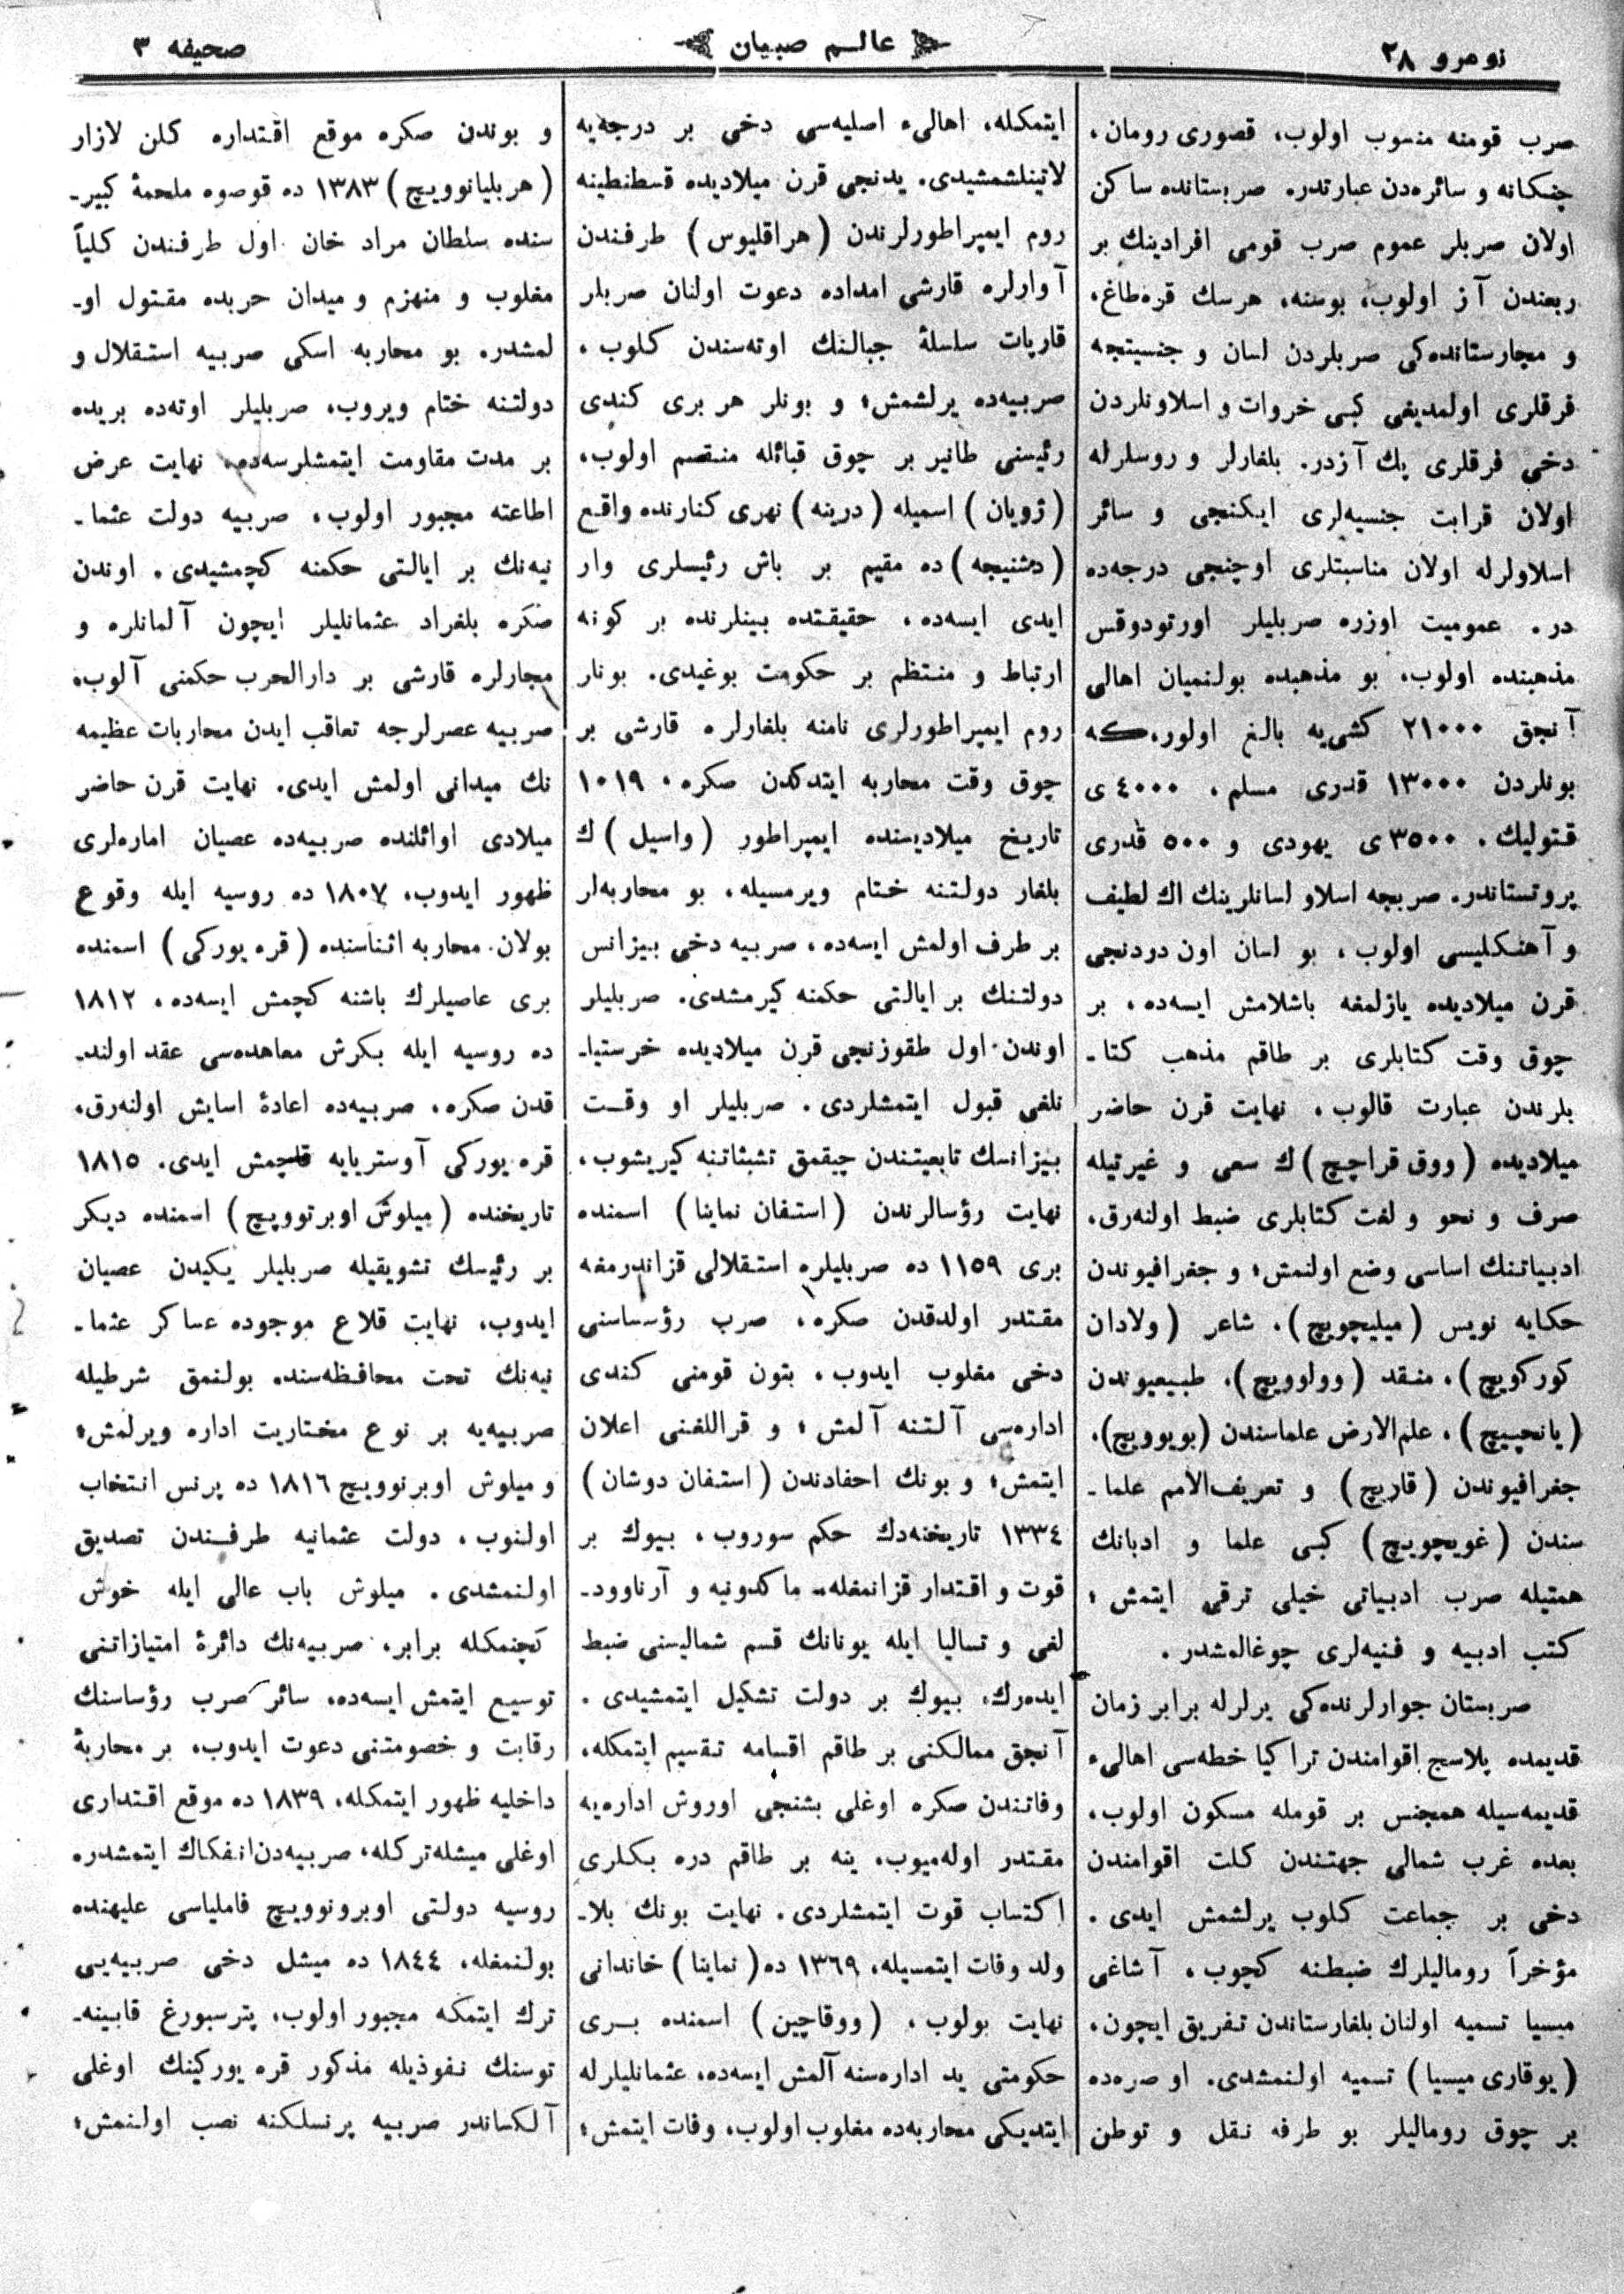 نومرو ٢٨
عالم صبيان
صحيفه ٣
صرب قومنه منسوب اولوب، قصورى رومان،
چنكانه و سائره‌دن عبارتدر. صربستانده ساكن
اولان صربلر عموم صرب قومى افرادينك بر
ربعندن آز اولوب، بوسنه، هرسك قره‌طاغ،
و مجارستانده‌كى صربلردن لسان و جنسيتجه
فرقلرى اولمديغى كبى خروات و اسلاونلردن
دخى فرقلرى پك آزدر. بلغارلر و روسلرله
اولان قرابت جنسيه‌لرى ايكنجى و سائر
اسلاولرله اولان مناسبتلرى اوچنجى درجه‌ده
در. عموميت اوزره صربليلر اورتودوقس
مذهبنده اولوب، بو مذهبده بولنميان اهالى
آنجق ٢١٠٠٠ كشى‌يه بالغ اولور، كه
بونلردن ١٣٠٠٠ قدرى مسلم، ٤٠٠٠ ى
قتوليك، ٣٥٠٠ ى يهودى و ٥٠٠ قدرى
پروتستاندر. صربجه اسلاو لسانلرينك اك لطيف
و آهنكليسى اولوب، بو لسان اون دردنجى
قرن ميلاديده يازلمغه باشلامش ايسه‌ده، بر
چوق وقت كتابلرى بر طاقم مذهب كتا-
بلرندن عبارت قالوب، نهايت قرن حاضر
ميلاديده (ووق قراچيچ) ك سعى و غيرتيله
صرف و نحو و لغت كتابلرى ضبط اولنه‌رق،
ادبياتنك اساسى وضع اولنمش؛ و جغرافيوندن
حكايه نويس (ميليچويچ)، شاعر (ولادان
كوركويچ)، منقد (وولوويچ)، طبيعيوندن
(يانچيچ)، علم‌الارض علماسندن (بويوويچ)،
جغرافيوندن (قاريچ) و تعريف‌الامم علما-
سندن (غويچويچ) كبى علما و ادبانك
همتيله صرب ادبياتى خيلى ترقى ايتمش؛
كتب ادبيه و فنيه‌لرى چوغالمشدر.
صربستان جوارلرنده‌كى يرلرله برابر زمان
قديمده پلاسج اقوامندن تراكيا خطه‌سى اهالىء
قديمه‌سيله همجنس بر قومله مسكون اولوب،
بعده غرب شمالى جهتندن كلت اقوامندن
دخى بر جماعت كلوب يرلشمش ايدى.
مؤخراً روماليلرك ضبطنه كچوب، آشاغى
ميسيا تسميه اولنان بلغارستاندن تفريق ايچون،
(يوقارى ميسيا) تسميه اولنمشدى. او صره‌ده
بر چوق روماليلر بو طرفه نقل و توطن
ايتمكله، اهالىء اصليه‌سى دخى بر درجه‌يه
لاتينلشمشيدى. يدنجى قرن ميلاديده قسطنطينه
روم ايمپراطورلرندن (هراقليوس) طرفندن
آوارلره قارشى امداده دعوت اولنان صربلر
قارپات سلسلهٔ جبالنك اوته‌سندن كلوب،
صربيه‌ده يرلشمش؛ و بونلر هر برى كندى
رئيسنى طانير بر چوق قبائله منقسم اولوب،
(ژوپان) اسميله (درينه) نهرى كنارنده واقع
(دشنيجه) ده مقيم بر باش رئيسلرى وار
ايدى ايسه‌ده، حقيقتده بينلرنده بر كونه
ارتباط و منتظم بر حكومت يوغيدى. بونار
روم ايمپراطورلرى نامنه بلغارلره قارشى بر
چوق وقت محاربه ايتدكدن صكره، ١٠١٩
تاريخ ميلاديسنده ايمپراطور (واسيل) ك
بلغار دولتنه ختام ويرمسيله، بو محاربه‌لر
بر طرف اولمش ايسه‌ده، صربيه دخى بيزانس
دولتنك بر ايالتى حكمنه كيرمشدى. صربليلر
اوندن اول طقوزنجى قرن ميلاديده خرستيا-
نلغى قبول ايتمشلردى. صربليلر او وقت
بيزانسك تابعيتندن چيقمق تشبثاتنه كيريشوب،
نهايت رؤسالرندن (استفان نماينا) اسمنده
برى ١١٥٩ ده صربليلره استقلالى قزاندرمغه
مقتدر اولدقدن صكره، صرب رؤساسنى
دخى مغلوب ايدوب، بتون قومنى كندى
اداره‌سى آلتنه آلمش؛ و قراللغنى اعلان
ايتمش؛ و بونك احفادندن (استفان دوشان)
١٣٣٤ تاريخنه‌دك حكم سوروب، بيوك بر
قوت و اقتدار قزانمغله، ماكدونيه و آرناوود-
لغى و تساليا ايله يونانك قسم شماليسنى ضبط
ايده‌رك، بيوك بر دولت تشكيل ايتمشيدى.
آنجق ممالكنى بر طاقم اقسامه تقسيم ايتمكله،
وفاتندن صكره اوغلى بشنجى اوروش اداره‌يه
مقتدر اوله‌ميوب، ينه بر طاقم دره بكلرى
اكتساب قوت ايتمشلردى. نهايت بونك بلا-
ولد وفات ايتمسيله، ١٣٦٩ ده (نماينا) خاندانى
نهايت بولوب، (ووقاچين) اسمنده برى
حكومتى يد اداره‌سنه آلمش ايسه‌ده، عثمانليلرله
ايتديكى محاربه‌ده مغلوب اولوب، وفات ايتمش؛
و بوندن صكره موقع اقتداره كلن لازار
(هربليانوويچ) ١٣٨٣ ده قوصوه ملحمهٔ كبير-
سنده سلطان مراد خان اول طرفندن كلياً
مغلوب و منهزم و ميدان حربده مقتول او-
لمشدر. بو محاربه اسكى صربيه استقلال و
دولتنه ختام ويروب، صربليلر اوته‌ده بريده
بر مدت مقاومت ايتمشلرسه‌ده، نهايت عرض
اطاعته مجبور اولوب، صربيه دولت عثما-
نيه‌نك بر ايالتى حكمنه كچمشيدى. اوندن
صكره بلغراد عثمانليلر ايچون آلمانلره و
مجارلره قارشى بر دارالحرب حكمنى آلوب،
صربيه عصرلرجه تعاقب ايدن محاربات عظيمه
نك ميدانى اولمش ايدى. نهايت قرن حاضر
ميلادى اوائلنده صربيه‌ده عصيان اماره‌لرى
ظهور ايدوب، ١٨٠٧ ده روسيه ايله وقوع
بولان محاربه اثناسنده (قره يوركى) اسمنده
برى عاصيلرك باشنه كچمش ايسه‌ده، ١٨١٢
ده روسيه ايله بكرش معاهده‌سى عقد اولند-
قدن صكره، صربيه‌ده اعادهٔ اسايش اولنه‌رق،
قره يوركى آوستريايه قاچمش ايدى. ١٨١٥
تاريخنده (ميلوش اوبرنوويچ) اسمنده ديكر
بر رئيسك تشويقيله صربليلر يكيدن عصيان
ايدوب، نهايت قلاع موجوده عساكر عثما-
نيه‌نك تحت محافظه‌سنده بولنمق شرطيله
صربيه‌يه بر نوع مختاريت اداره ويرلمش؛
و ميلوش اوبرنوويچ ١٨١٦ ده پرنس انتخاب
اولنوب، دولت عثمانيه طرفندن تصديق
اولنمشدى. ميلوش باب عالى ايله خوش
كچنمكله برابر، صربيه‌نك دائرهٔ امتيازاتنى
توسيع ايتمش ايسه‌ده، سائر صرب رؤساسنك
رقابت و خصومتنى دعوت ايدوب، بر محاربهٔ
داخليه ظهور ايتمكله، ١٨٣٩ ده موقع اقتدارى
اوغلى ميشله تركله، صربيه‌دن انفكاك ايتمشدر.
روسيه دولتى اوبرونوويچ فاملياسى عليهنده
بولنمغله، ١٨٤٤ ده ميشل دخى صربيه‌يى
ترك ايتمكه مجبور اولوب، پترسبورغ قابينه-
توسنك نفوذيله مذكور قره يوركينك اوغلى
آلكساندر صربيه پرنسلكنه نصب اولنمش؛